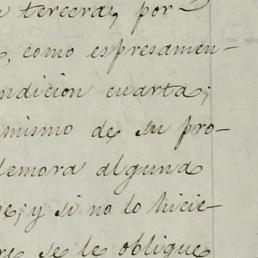 tercera, por-
, como espresamen-
ndicion cuarta;
mismo de su pro-
demora alguna
e; y si no lo hicie-
se le oblique